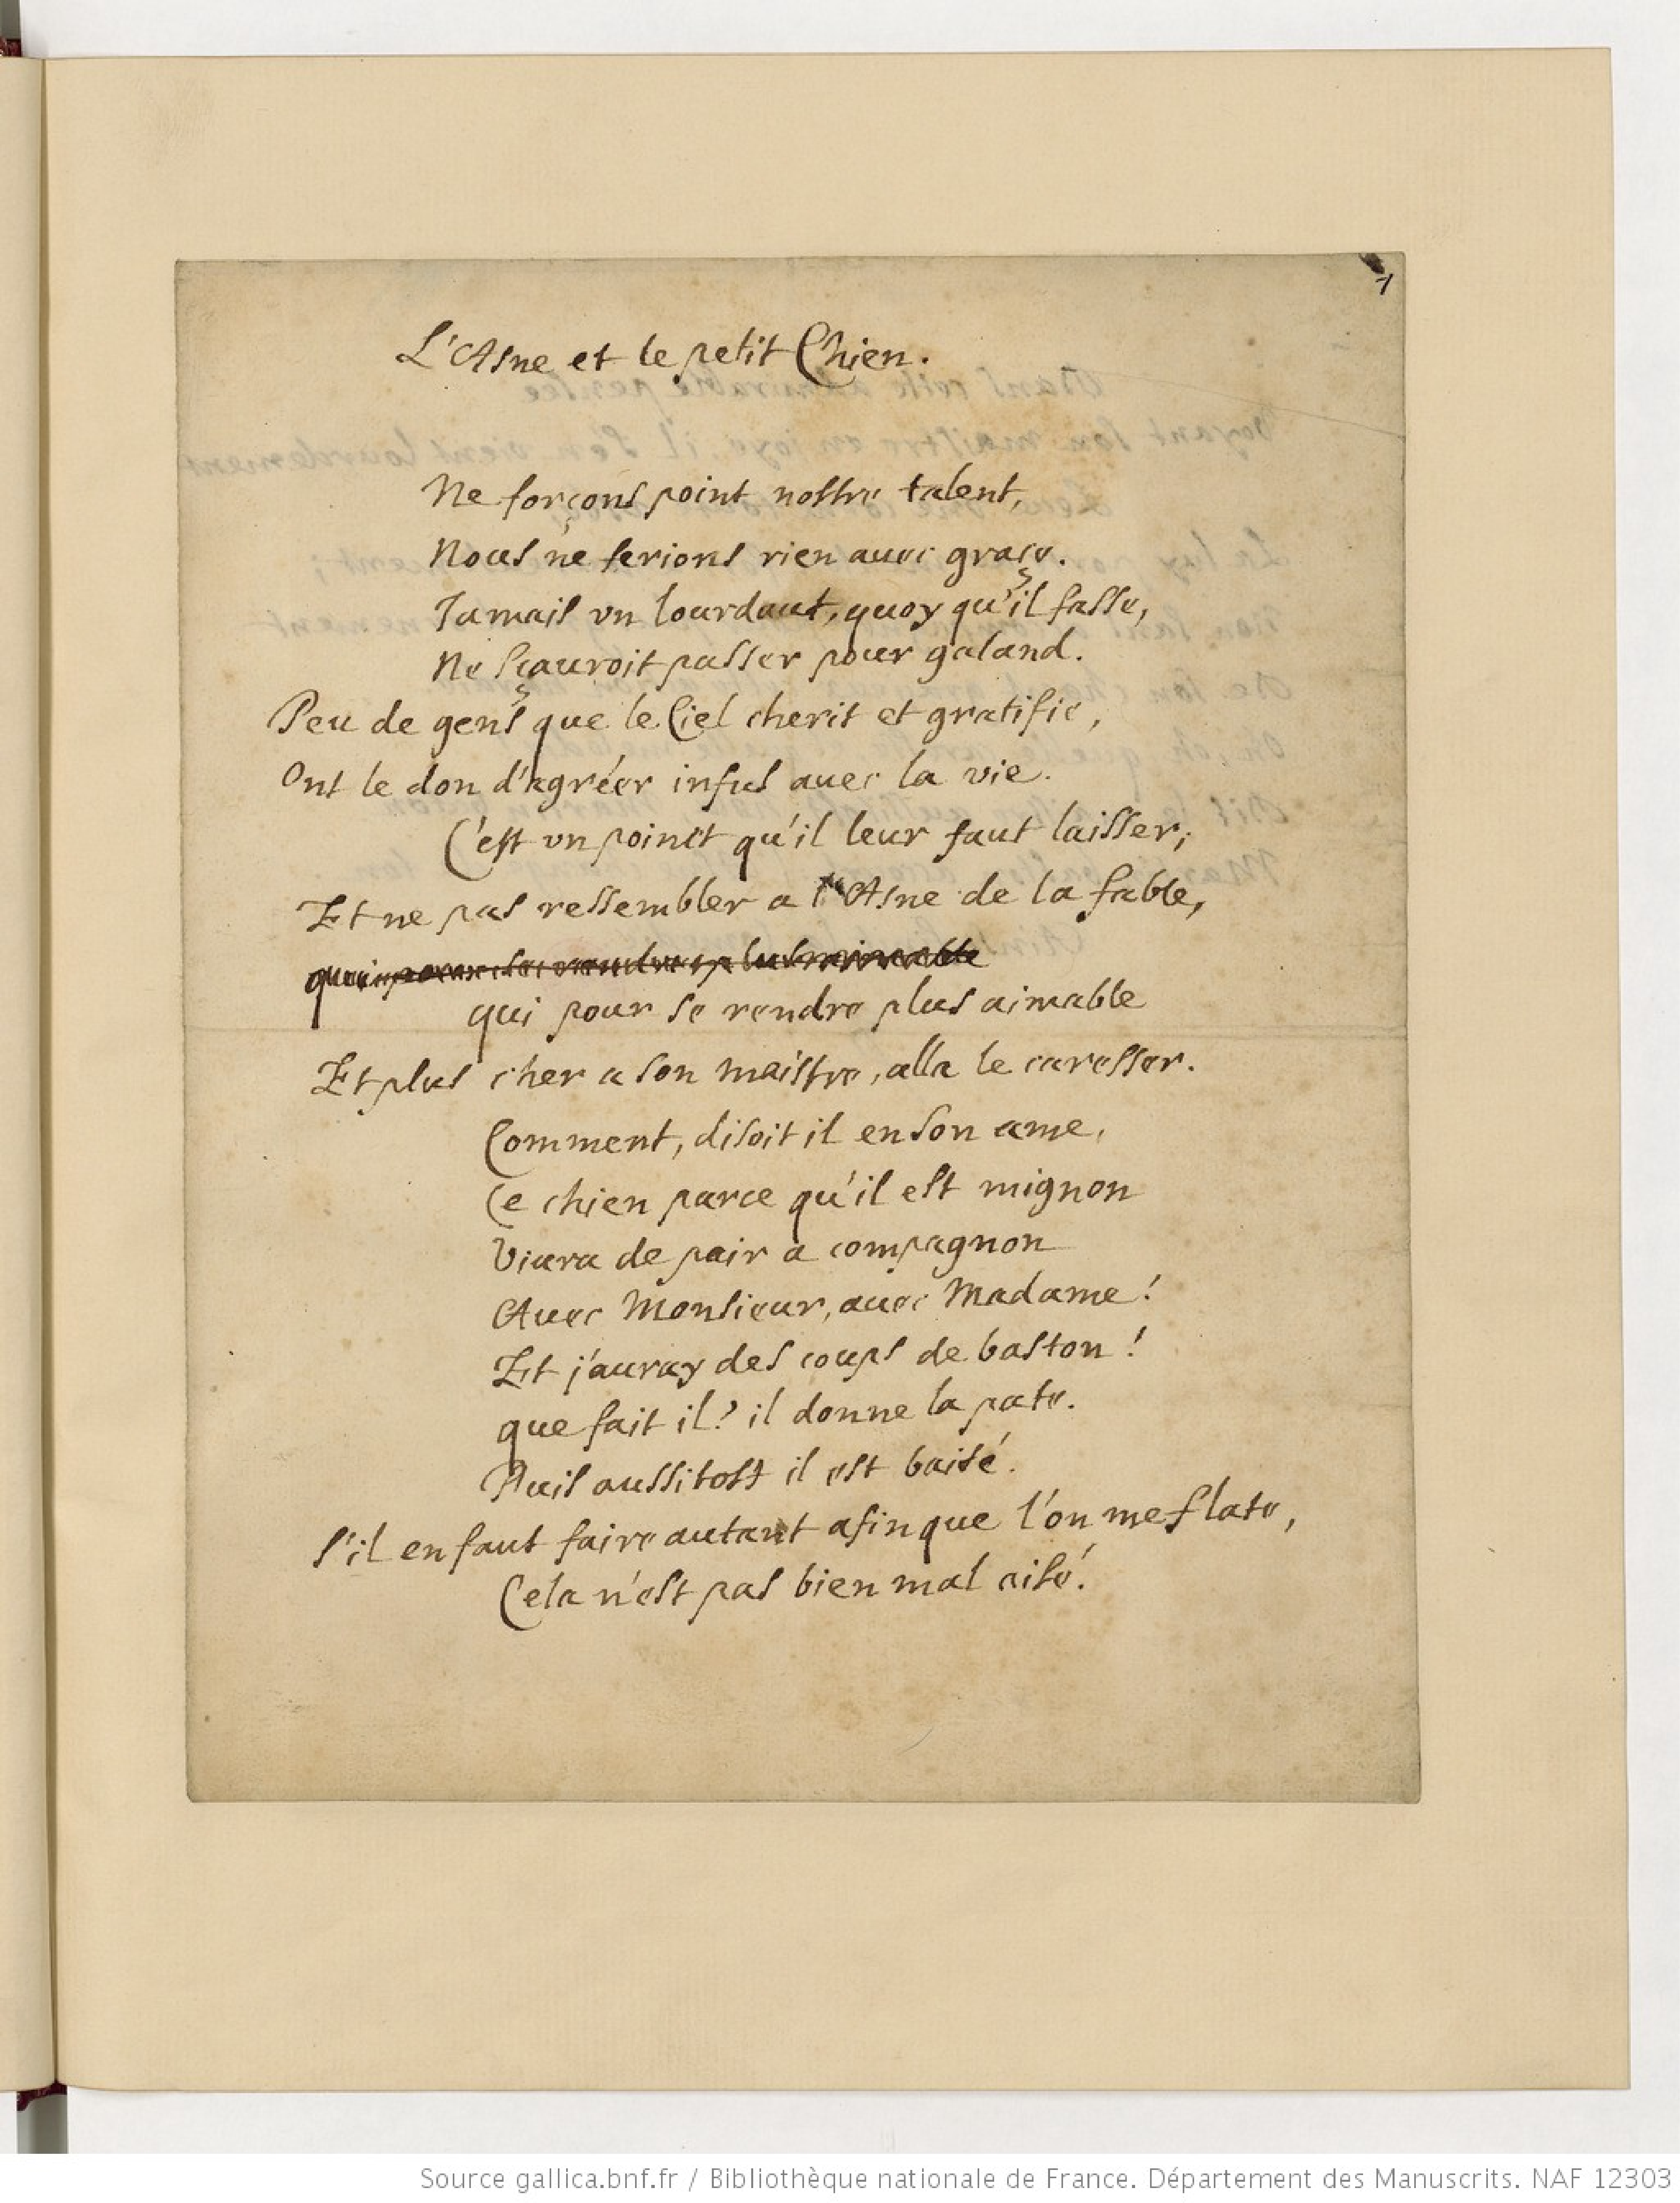 1
L'Asne et le petit Chien.
Ne forçons point nostre talent,
Nous ne ferions rien auec grace.
Jamais vn lourdaut, quoy qu'il fasse,
Ne sçauroit passer pour galand.
Peu de gens que le Ciel cherit et gratifie,
Ont le don d'agréer infus auec la vie.
C'est vn poinct qu'il leur faut laisser;
Et ne pas ressembler a l'Asne de la fable,
qui pour se rendre plus aimable
qui pour se rendre plus aimable
Et plus cher a son maistre, alla le caresser.
Comment, disoit il en son ame,
Ce chien parce qu'il est mignon
Viura de pair a compagnon
Auec Monsieur, auec Madame!
Et j'auray des coups de baston!
que fait il? il donne la pate.
Puis aussitost il est baisé.
S'il en faut faire autant afin que l'on me flate,
Cela n'est pas bien mal aisé.
Source gallica.bnf.fr / Bibliothèque nationale de France. Département des Manuscrits. NAF 12303